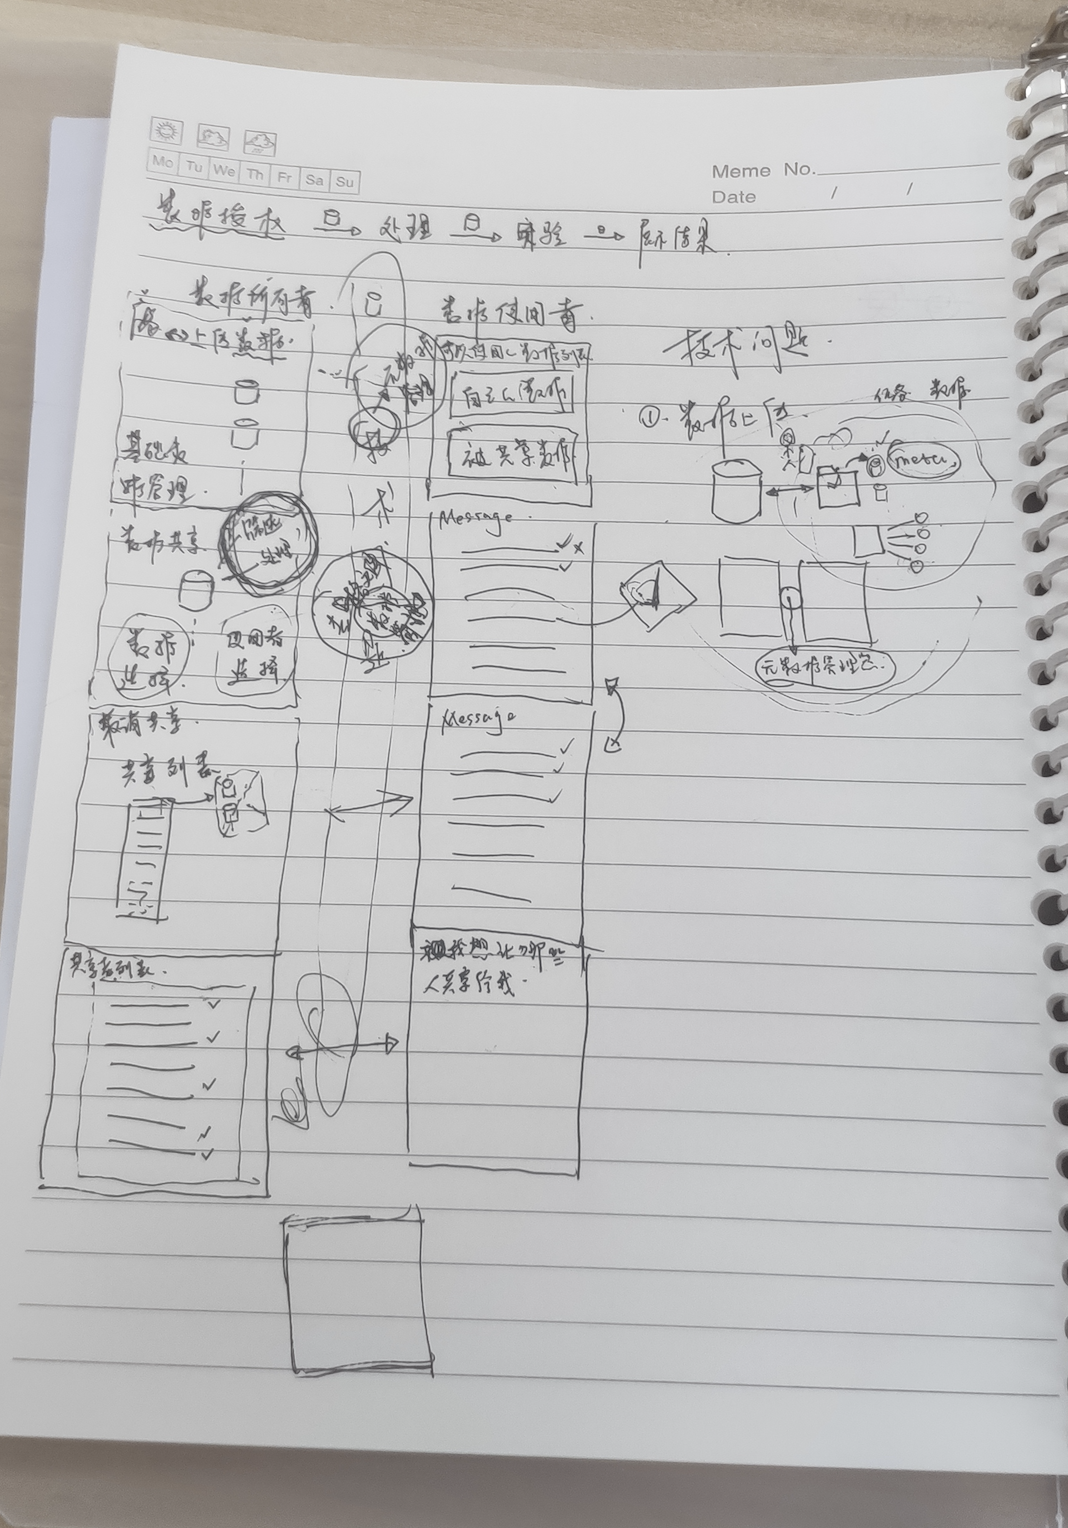 Mo Tu We Th Fr Sa Su
Meme No.
Date / /
数据授权 → 处理 → 实验 → 展示结果
数据所有者
上传数据
基础数
据管理
数据共享
筛选
处理
数据
选择
使用者
选择
取消共享
共享列表
共享者列表
元数据
管理
数据使用者
可以使用的数据列表
自己上传数据
被共享数据
Message
Message
我想让哪些
人共享给我
技术问题
① 数据上传
任务 数据
meta
元数据管理